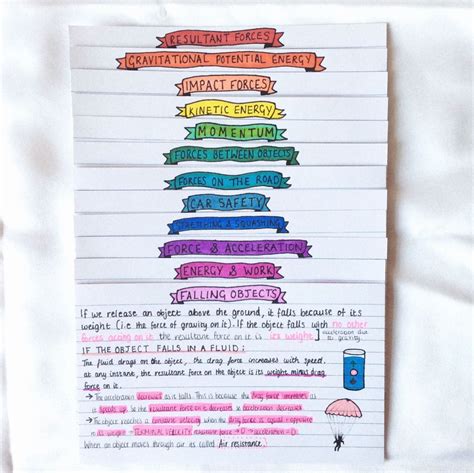 RESULTANT FORCES
GRAVITATIONAL POTENTIAL ENERGY
IMPACT FORCES
KINETIC ENERGY
MOMENTUM
FORCES BETWEEN OBJECTS
FORCES ON THE ROAD
CAR SAFETY
STRETCHING & SQUASHING
FORCE & ACCELERATION
ENERGY & WORK
FALLING OBJECTS
If we release an object above the ground, it falls because of its
weight (i.e the force of gravity on it). If the object falls with no other
forces acting on it, the resultant force on it is its weight] acceleration due to gravity.
IF THE OBJECT FALLS IN A FLUID:
The fluid drags on the object, the drag force increases with speed.
at any instant, the resultant force on the object is its weight minus drag
force on it.
→ The acceleration decreases as it falls. This is because the drag force increases as
it speeds up. So the resultant force on it decreases so acceleration decreases
→ The object reaches a constant velocity when the drag force is equal + opposite
to its weight → TERMINAL VELOCITY resultant force → 0 acceleration → 0.
When an object moves through air its called Air resistance!